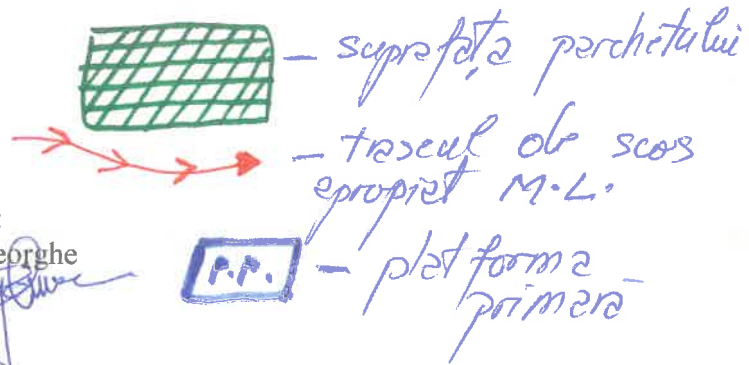 – suprafața parchetului
– traseul de scos
apropiat M.L.
Gheorghe
P.P. – platforma
primară